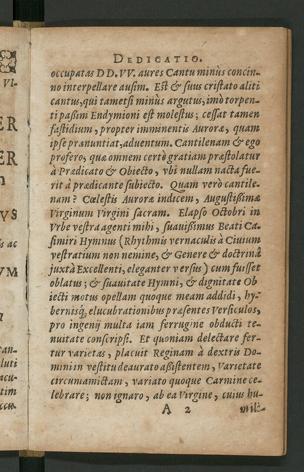 DEDICATIO.
occupatas DD. VV. aures Cantu minùs concin-
no interpellare ausim. Est & suus cristato aliti
cantus, qui tametsi minùs argutus, imò torpen-
ti passim Endymioni est molestus; cessat tamen
fastidium, propter imminentis Auroræ, quam
ipse prænuntiat, aduentum. Cantilenam & ego
profero, quæ omnem certè gratiam præstolatur
à Prædicato & Obiecto, vbi nullam nacta fue-
rit à prædicante subiecto. Quam verò cantile-
nam? Cœlestis Auroræ indicem, Augustissimæ
Virginum Virgini sacram. Elapso Octobri in
Vrbe vestra agenti mihi, suauissimus Beati Ca-
simiri Hymnus (Rhythmis vernaculis à Ciuium
vestratium non nemine, & Genere & doctrinâ
juxtà Excellenti, eleganter versus) cum fuisset
oblatus; & suauitate Hymni, & dignitate Ob-
iecti motus opellam quoque meam addidi, hy-
bernisq́; elucubrationibus præsentes Versiculos,
pro ingenij multa iam ferrugine obducti te-
nuitate conscripsi. Et quoniam delectare fer-
tur varietas, placuit Reginam à dextris Do-
mini in vestitu deaurato assistentem, Varietate
circumamictam, variato quoque Carmine ce-
lebrare; non ignaro, ab ea Virgine, cuius hu-
A 2
mili-